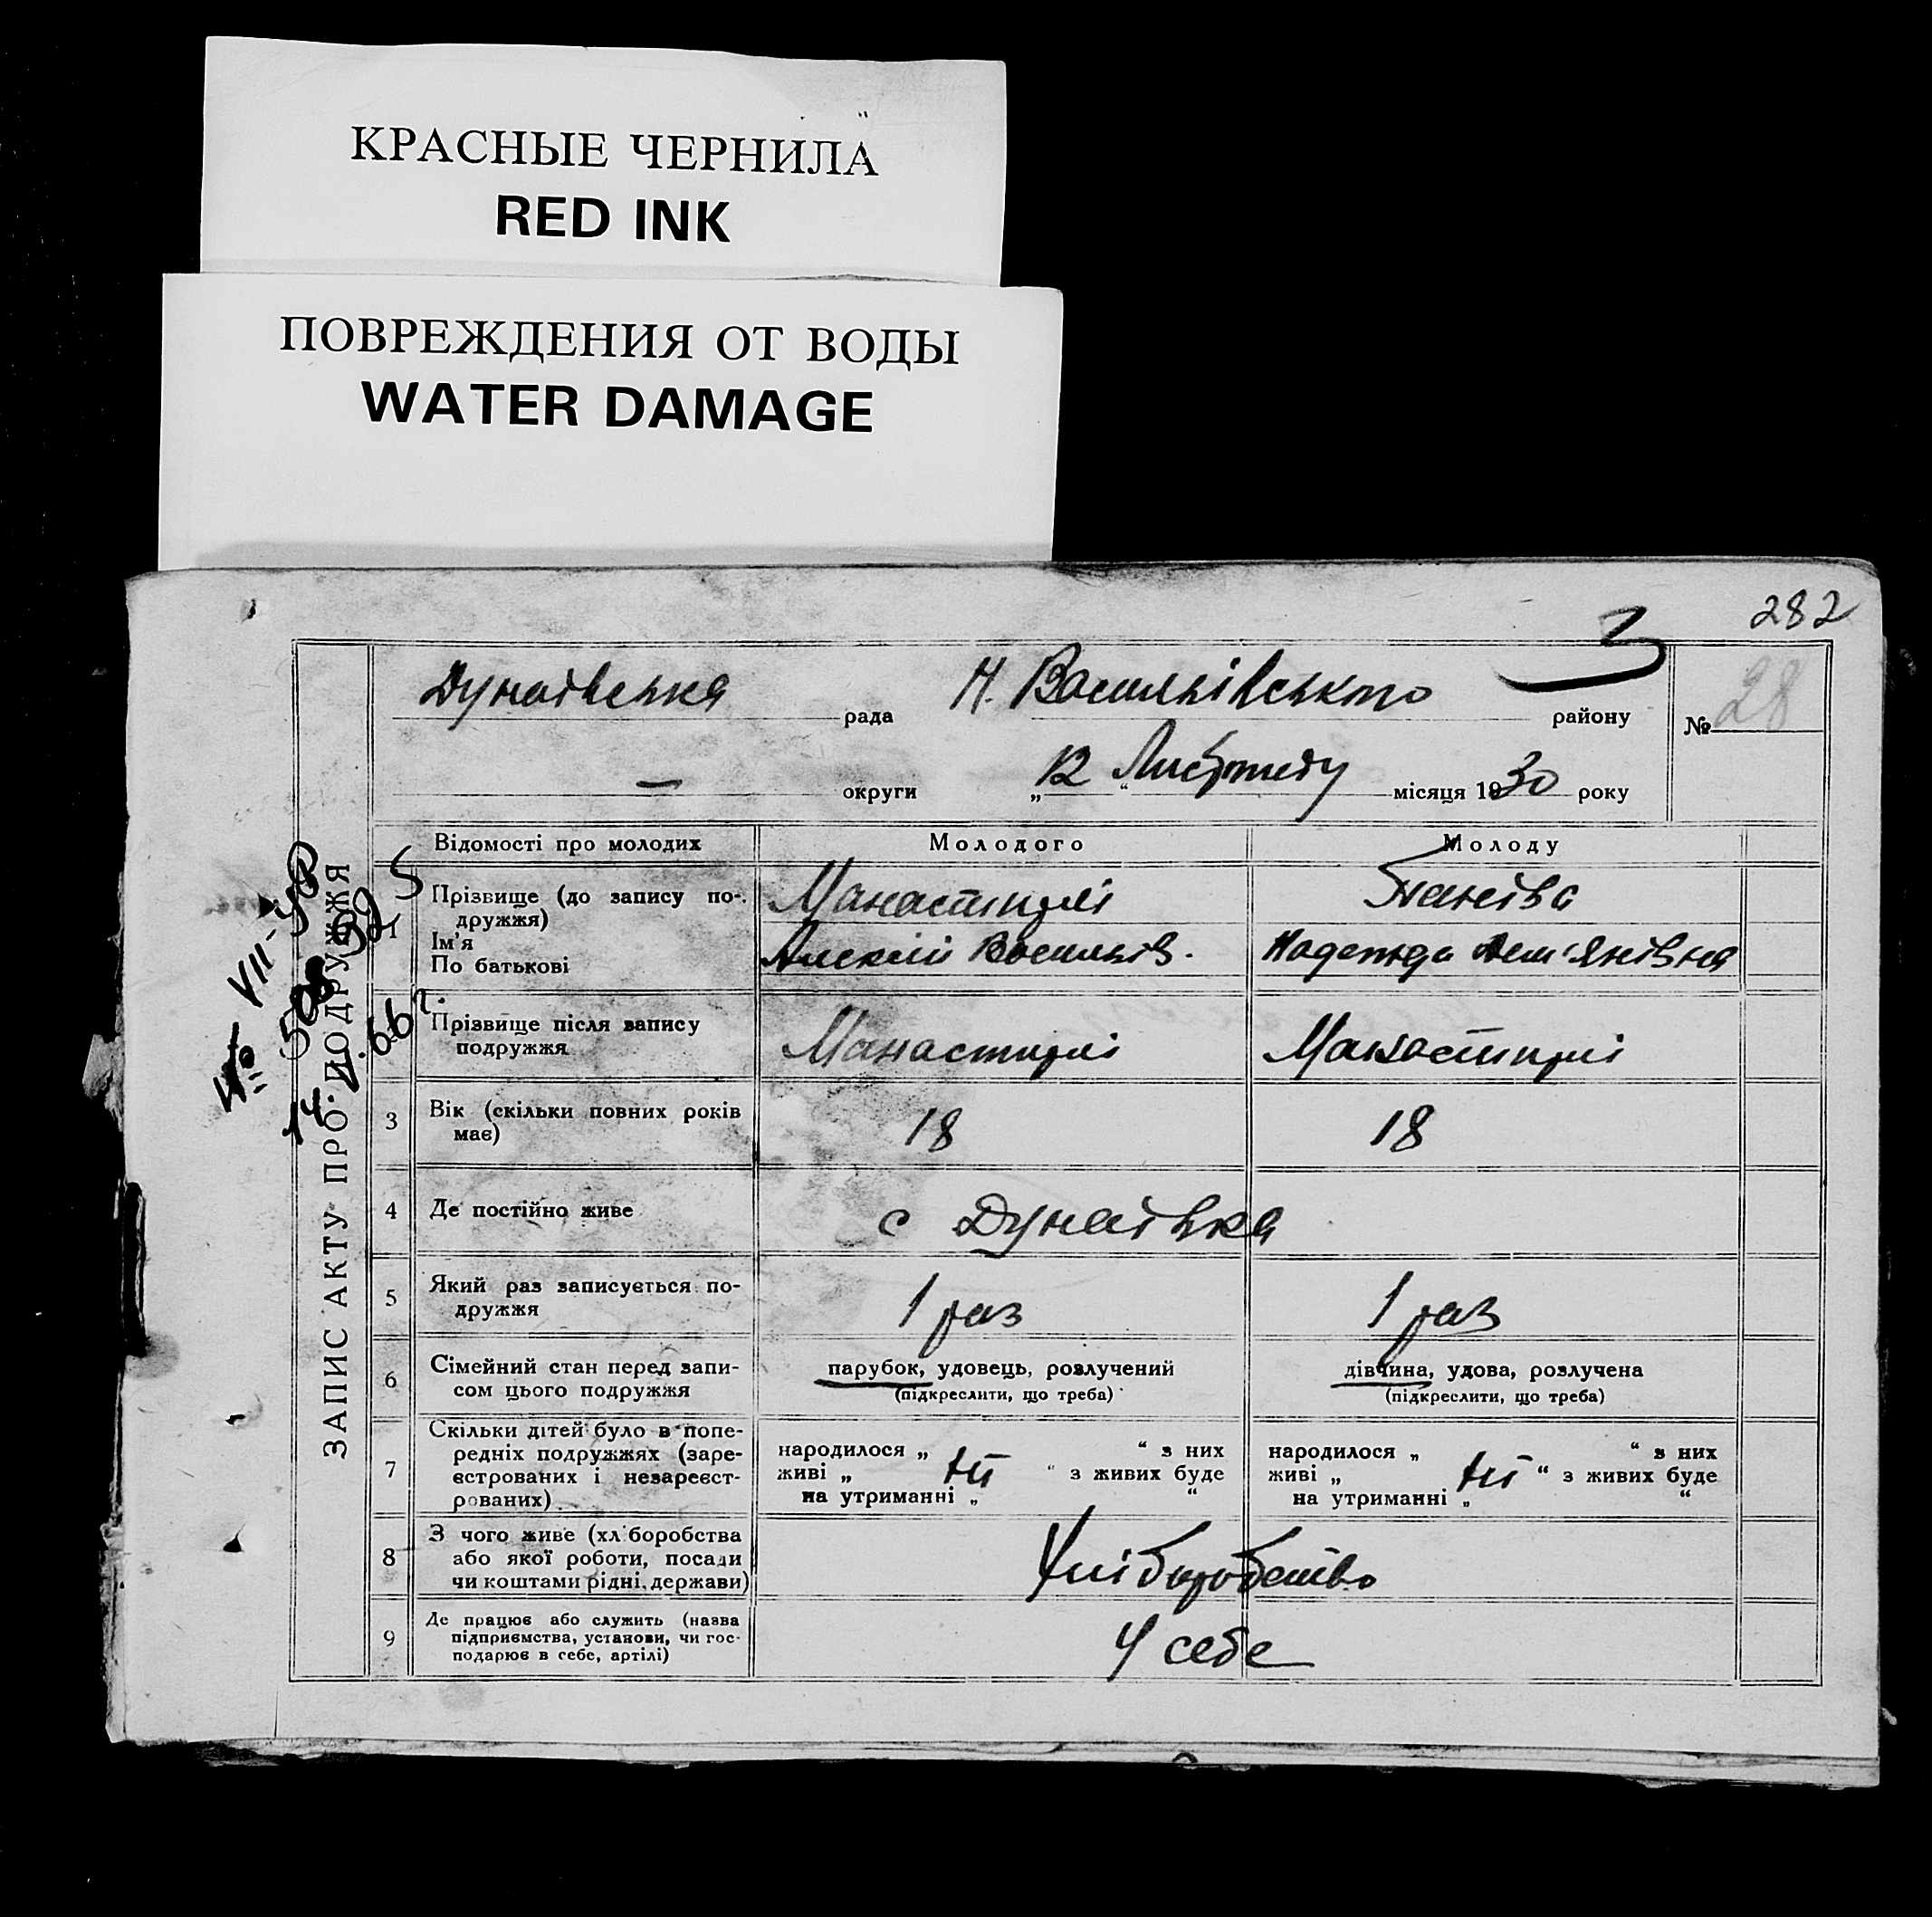 КРАСНЫЕ ЧЕРНИЛА
RED INK
ПОВРЕЖДЕНИЯ ОТ ВОДЫ
WATER DAMAGE
282
3
Дунаївська рада Н. Васильківського району
№ 28
— округи „12“ Листопаду місяця 1930 року
ЗАПИС АКТУ ПРО ПОДРУЖЖЯ
VII-УВ
14. 66 г.
Відомості про молодих Молодого Молоду
1 Прізвище (до запису по-
дружжя)
Манастирлі Танєїва
Ім'я
По батькові
Алексій Васильїв. Надежда Дем'янівна
Прізвище після запису
подружжя
Манастирлі Манастирлі
3 Вік (скільки повних років
має)
18 18
4 Де постійно живе с Дунаївка
5 Який раз записується по-
дружжя
1 раз 1 раз
6 Сімейний стан перед запи-
сом цього подружжя
парубок, удовець, розлучений дівчина, удова, розлучена
(підкреслити, що треба) (підкреслити, що треба)
7 Скільки дітей було в попе-
редніх подружжях (заре-
єстрованих і незареєст-
рованих)
народилося „ “ з них народилося „ “ з них
живі „ ні “ з живих буде живі „ ні “ з живих буде
на утриманні „ “ на утриманні „ “
8 З чого живе (хліборобства
або якої роботи, посади
чи коштами рідні, держави)
Хліборобство
9 Де працює або служить (назва
підприємства, установи, чи гос-
подарює в себе, артілі)
У себе